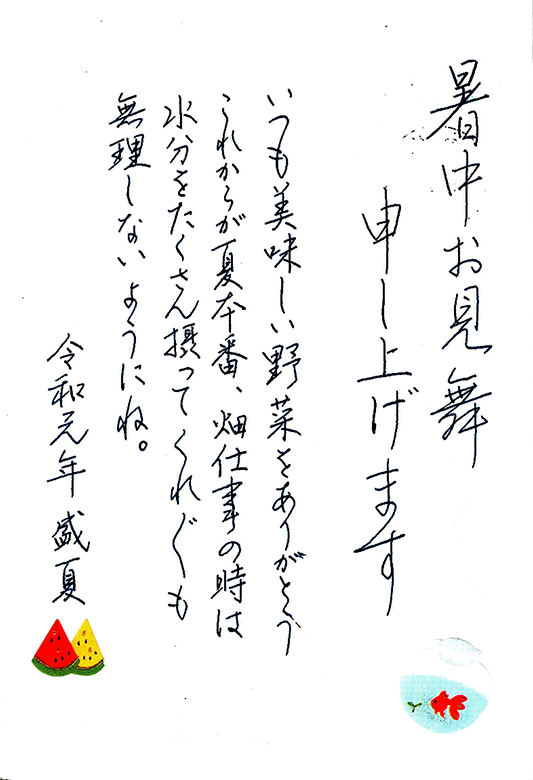 暑中お見舞
申し上げます
いつも美味しい野菜をありがとう
これからが夏本番、畑仕事の時は
水分をたくさん摂ってくれぐも
無理しないようにね。
令和元年盛夏